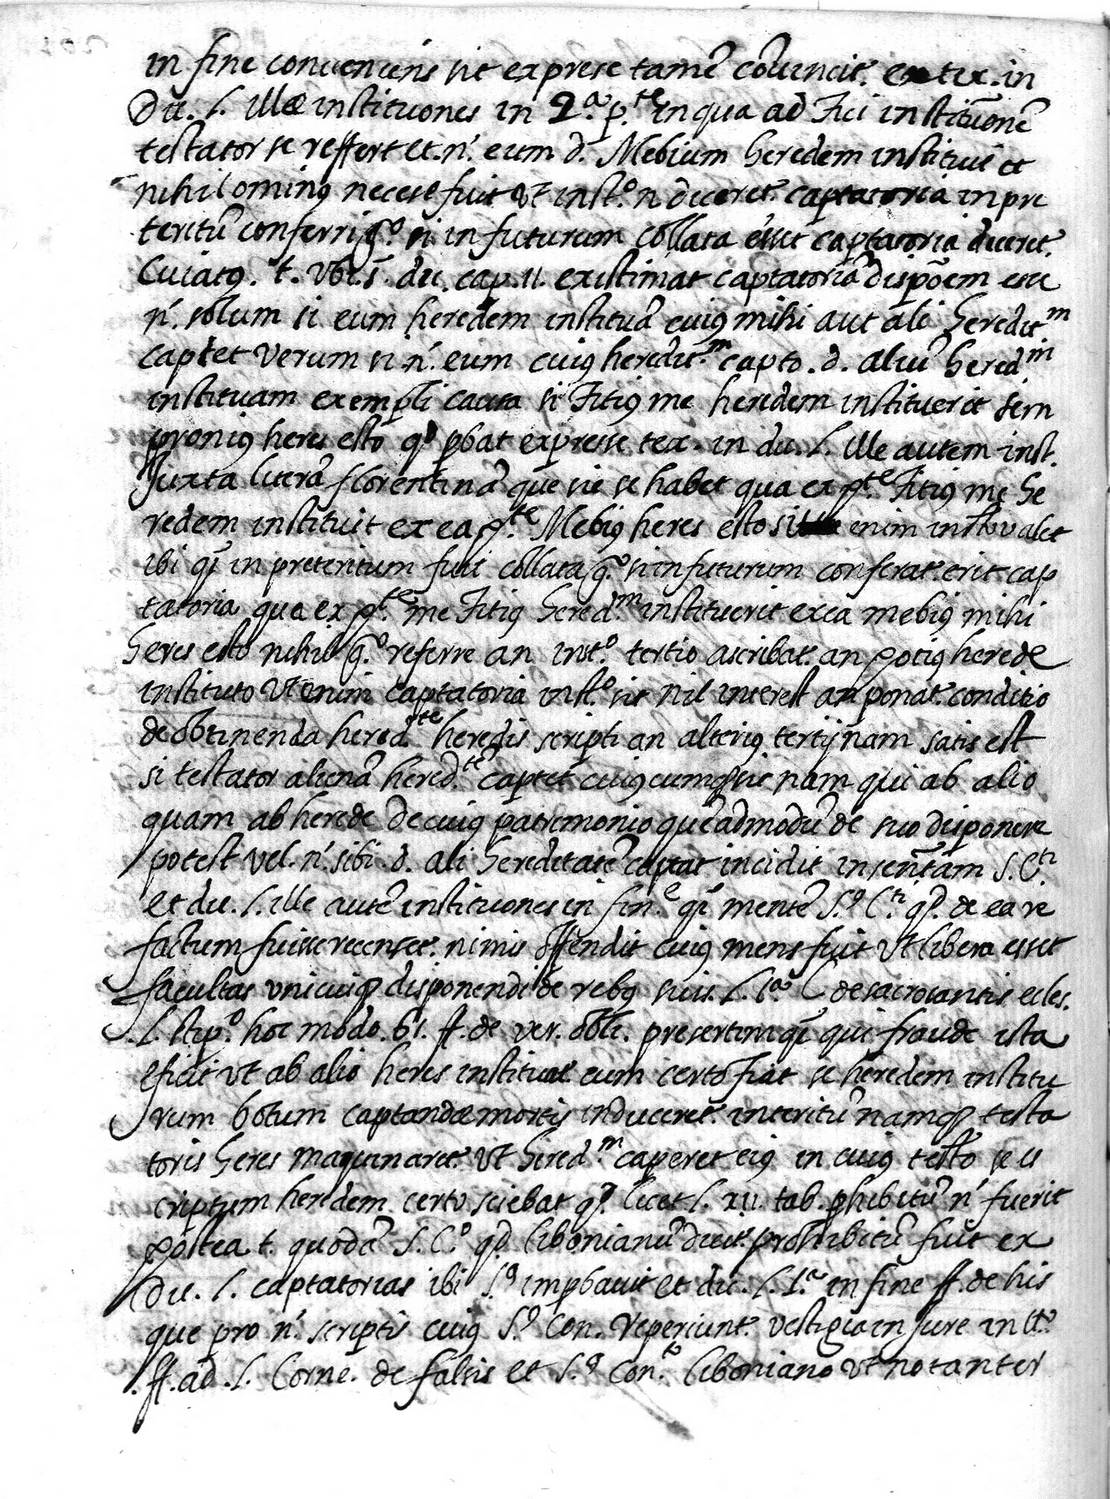 in fine conveniens sit exprese tamẽ cõvincit. ex tex. in
Dic. l. illae institutiones in 2.ª p.te in qua ad Ticii institũonẽ
testator se reffert et. n. eum d. Mebium heredem instituit et
nihilominꝰ necese fuit ut inst.º n diceret. captatoria in pre
teritũ conferri q.º si in futurum collata esset captatoria diceret.
Cuiatꝰ. t. ubi s. dic. cap. 11. existimat captatoriã dispõem esse
n. solum si eum heredem instituã cuiꝰ mihi aut alii heredit.m
captet verum si. n. eum cuiꝰ heredit.m capto. d. aliũ hered.m
instituam exempli causa si Titiꝰ me heredem instituerit sem
proniꝰ heres esto qd pbat expresse tex. in dic. l. ille autem inst.
Juxta literã florentinã que sic se habet qua ex p.te Titiꝰ me he
redem instituit ex ea p.te Mebiꝰ heres esto enim inst.º valet
ibi q in preteritum fuit collata q.º si in futurum conferat. erit cap
tatoria qua ex p.te me Titiꝰ hered.m instituerit ex ea mebiꝰ mihi
heres esto nihil q.º referre an inst.º tertio ascribat. an potiꝰ herede
instituto ut enim captatoria inst.º sit nil interest an ponat. conditio
de obtinenda hered.te heredis scripti an alteriꝰ tertij nam satis est
si testator alienã hered.te captet cuiꝰcumq sit nam qui ab alio
quam ab herede de cuiꝰ patrimonio quẽadmodũ de suo disponere
potest vel. n. sibi d. alii hereditatẽ captat incidit in senẽtam S. C.ti
et dic. l. ille autẽ institutiones in fin.e q mentẽ S.s C.ti qd. de ea re
factum fuisse recenset. nimis offendit cuiꝰ mens fuit ut libera esset
facultas unicuiq disponendi de rebꝰ suis. l. 1.ª C de sacrosantis ecles.
l. stip.º hoc modo. 61. ff. de ver. obli. presertim q qui fraude ista
eficit ut ab alio heres instituat. cum certo fiat se heredem institu
rum botum captandae mortis induceret. interitũ namq testa
toris heres maquinaret. ut hered.m caperet eiꝰ in cuiꝰ testo se es
criptum heredem certo sciebat qd. licet l. xii. tab. phibitũ n. fuerit
postea t. quodã S. C.º qd libonianũ dicit. prohibitũ fuit ex
dic. l. captatorias ibi S.s impbavit et dic. l. 1.ª in fine ff. de his
que pro n. scriptis cuiꝰ S.s Con. reperiunt. vestigia in jure in tt.º
ff. ad. l. Corne. de falsis et S.s Con.º liboniano ut notanter